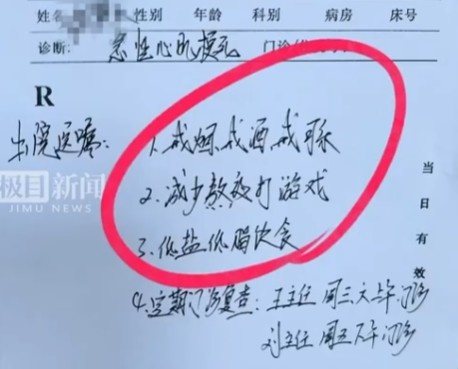 姓名 性别 年龄 科别 病房 床号
诊断: 急性心肌梗死 门诊
R
出院医嘱: 1.戒烟戒酒戒
2.减少熬夜打游戏
3.低盐低脂饮食
4.定期门诊复查: 王主任 周三六上午门诊
刘主任 周五下午门诊
当日有效
极目新闻
JIMU NEWS